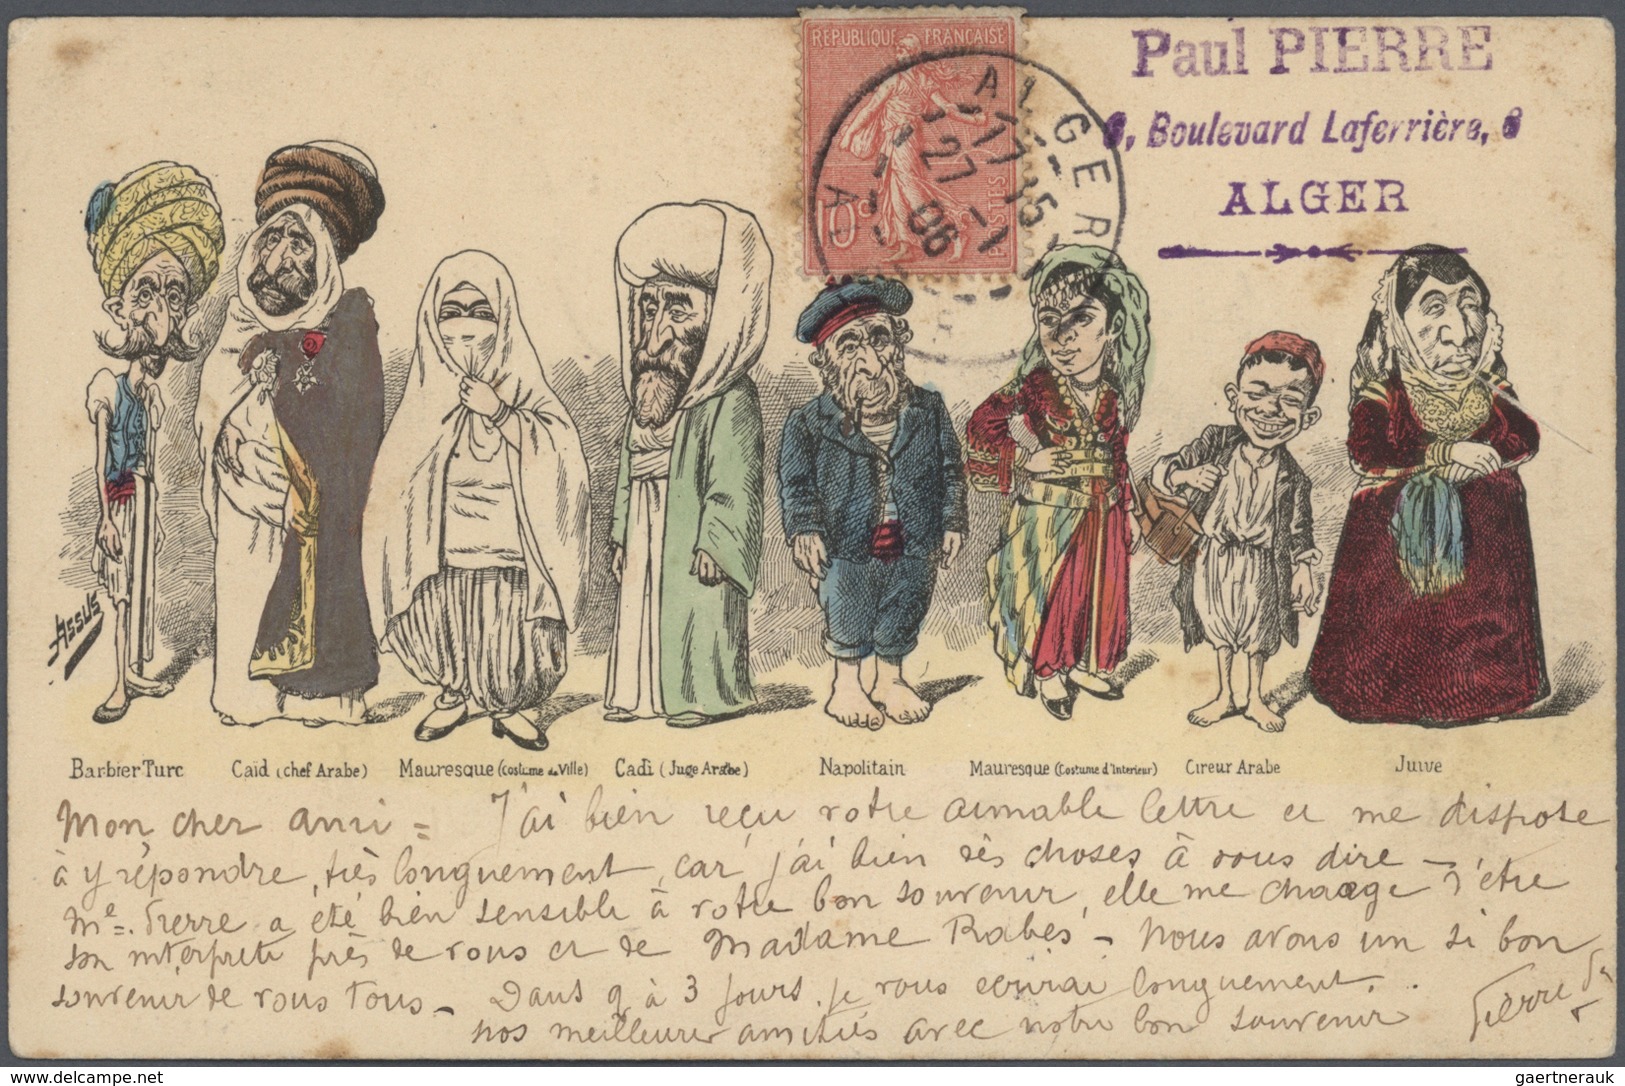 REPUBLIQUE FRANÇAISE
10c
POSTES
ALGER
17 15
27 -1
06
A
Paul PIERRE
6, Boulevard Laferrière, 6
ALGER
Assus
Barbier Turc
Caïd (chef Arabe)
Mauresque (Costume de Ville)
Cadi (Juge Arabe)
Napolitain
Mauresque (Costume d'Interieur)
Cireur Arabe
Juive
Mon cher ami = J'ai bien reçu votre aimable lettre et me dispose
à y répondre, très longuement, car j'ai bien des choses à vous dire -
Me. Pierre a été bien sensible à votre bon souvenir, elle me charge d'être
son interprète près de vous et de Madame Rabès - Nous avons un si bon
souvenir de vous tous - Dans 2 à 3 jours je vous écrirai longuement.
nos meilleures amitiés avec notre bon souvenir Pierre
delcampe.net
gaertnerauk